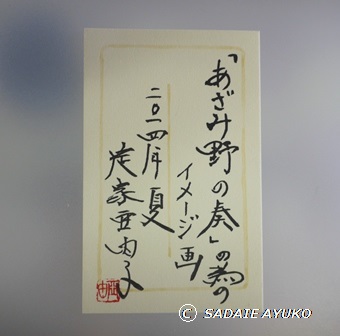 「あざみ野の奏」の為の
イメージ画
二〇一四年夏
定家亜由子
© SADAIE AYUKO